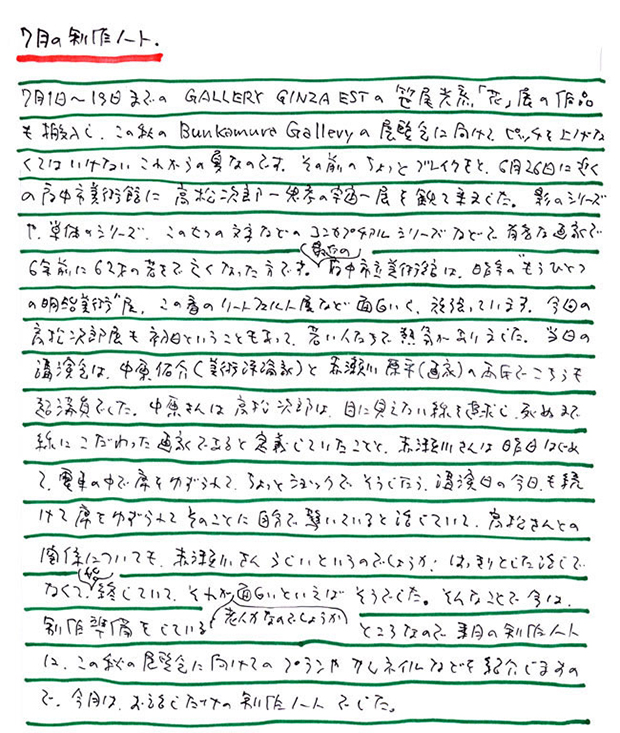 7月の制作ノート.
7月1日〜19日までの GALLERY GINZA ESTの 笹尾光彦「花」展の作品
も搬入し、この秋の Bunkamura Galleryの展覧会に向けて ピッチを上げな
くてはいけない これからの夏なのです。その前の ちょっと ブレイクをと、6月26日に 近く
の 府中市美術館に 高松次郎ー思考の宇宙ー展を観て来ました。影のシリーズ
や、単体のシリーズ、この七つの文字などの コンセプチアル シリーズなどで 有名な画家で
6年前に62才の若さで亡くなった方です。府中市立美術館は、昨年の"もうひとつ
の明治美術"展、この春の リートフェルト展など 面白いく、頑張っています。今回の
高松次郎展も初日ということもあって、若い人たちで 熱気がありました。当日の
講演会は、中原佑介(美術評論家)と 赤瀬川原平(画家)の両氏でこちらも
超満員でした。中原さんは 高松次郎は、目に見えない線を追求し、死ぬまで
線にこだわった画家であると定義していたことと、赤瀬川さんは昨日はじめ
て、電車の中で席をゆずられて、ちょっとショックで そうしたら、講演日の今日、も続
けて席をゆずられて そのことに自分で驚いていると話していて、高松さんとの
関係についても、赤瀬川さん らしいというのでしょうか、はっきりとした話しで
なくて、終始していて、それが面白いといえば そうでした。そんなことで 今は、
制作準備をしている(老人力なのでしょうか) ところなので 来月の制作ノート
に、この秋の展覧会に向けての プランや サムネイルなどを紹介しますの
で、今月は、お話しだけの 制作ノート でした。